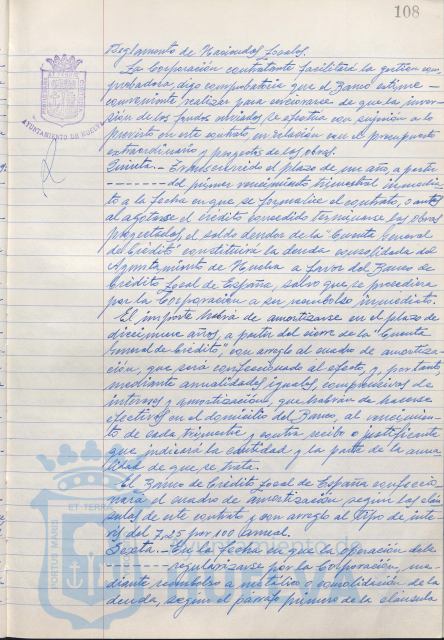 108
Reglamento de Haciendas Locales.
La Corporación contratante facilitará la gestión com
probadora, digo comprobatoria que el Banco estime
conveniente realizar para cerciorarse de que la inver
sión de los fondos enviados se efectúa con sujeción a lo
previsto en este contrato, en relación con el presupuesto
extraordinario y proyectos de las obras.
Quinta.- Transcurrido el plazo de un año, a partir
del primer vencimiento trimestral inmedia
to a la fecha en que se formalice el contrato, o antes
al agotarse el crédito concedido terminarse las obras
proyectadas, el saldo deudor de la "Cuenta General
de Crédito" constituirá la deuda consolidada del
Ayuntamiento de Huelva a favor del Banco de
Crédito Local de España, salvo que se procediera
por la Corporación a su reembolso inmediato
El importe habrá de amortizarse en el plazo de
diecinueve años, a partir del cierre de la "Cuenta
General de Crédito", con arreglo al cuadro de amortiza-
ción, que será confeccionado al efecto, y, por tanto,
mediante anualidades iguales, comprensivas de
intereses y amortización, que habrán de hacerse
efectivas en el domicilio del Banco, al vencimien-
to de cada trimestre y contra recibo o justificante
que indicará la cantidad y la parte de la anua
lidad de que se trata.
El Banco de Crédito Local de España confeccio-
nará el cuadro de amortización según las cláu
sulas de este contrato y con arreglo al tipo de inte
rés del 7,25 por 100 anual.
Sexta.- En la fecha en que la operación deba
regularizarse por la Corporación, me-
diante reembolso a metálico o consolidación de la
deuda, según el párrafo primero de la cláusula
AYUNTAMIENTO DE HUELVA
PORTUS MARIS ET TERRAE